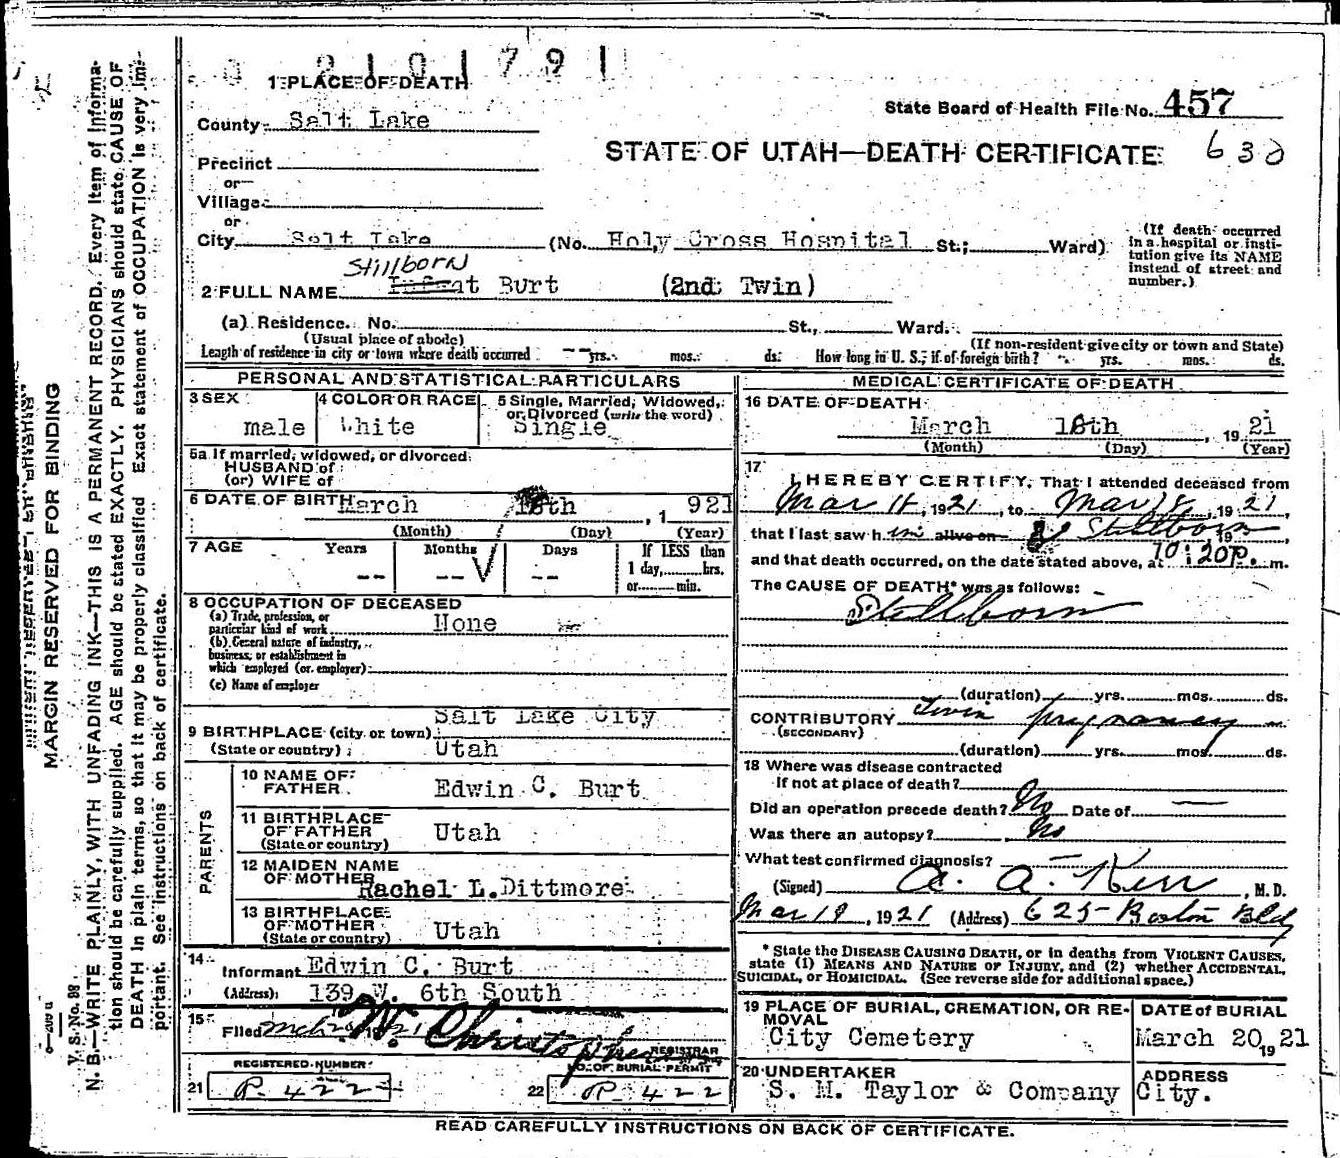 2101791
1 PLACE OF DEATH
State Board of Health File No. 457
County Salt Lake
STATE OF UTAH—DEATH CERTIFICATE 630
Precinct
or
Village
or
City Salt Lake (No. Holy Cross Hospital St.; Ward)
(If death occurred in a hospital or insti-
tution give its NAME
instead of street and
number.)
Stillborn
2 FULL NAME Infant Burt (2nd Twin)
(a) Residence. No. St., Ward.
(Usual place of abode) (If non-resident give city or town and State)
Length of residence in city or town where death occurred -- yrs. mos. ds. How long in U. S., if of foreign birth? yrs. mos. ds.
PERSONAL AND STATISTICAL PARTICULARS
3 SEX male
4 COLOR OR RACE White
5 Single, Married, Widowed,
or Divorced (write the word)
Single
5a If married, widowed, or divorced
HUSBAND of
(or) WIFE of
6 DATE OF BIRTH March 18th, 1921
(Month) (Day) (Year)
7 AGE Years Months Days If LESS than
1 day, hrs.
or min.
-- -- --
8 OCCUPATION OF DECEASED
(a) Trade, profession, or
particular kind of work None
(b) General nature of industry,
business, or establishment in
which employed (or employer)
(c) Name of employer
9 BIRTHPLACE (city or town) Salt Lake City
(State or country) Utah
PARENTS
10 NAME OF
FATHER Edwin C. Burt
11 BIRTHPLACE
OF FATHER Utah
(State or country)
12 MAIDEN NAME
OF MOTHER Rachel L. Dittmore
13 BIRTHPLACE
OF MOTHER Utah
(State or country)
14
Informant Edwin C. Burt
(Address) 139 W. 6th South
15
Filed W. Christopher
REGISTRAR
REGISTERED NUMBER
21 P. 422
NO. OF BURIAL PERMIT
22 P 422
MEDICAL CERTIFICATE OF DEATH
16 DATE OF DEATH
March 18th, 1921
(Month) (Day) (Year)
17
I HEREBY CERTIFY, That I attended deceased from
Mar 18, 1921, to Mar 18, 1921,
that I last saw him alive on Stillborn, 19
and that death occurred, on the date stated above, at 10:20P. m.
The CAUSE OF DEATH* was as follows:
Stillborn
(duration) yrs. mos. ds.
CONTRIBUTORY Twin pregnancy
(SECONDARY)
(duration) yrs. mos. ds.
18 Where was disease contracted
if not at place of death?
Did an operation precede death? No Date of —
Was there an autopsy? No
What test confirmed diagnosis? —
(Signed) A. A. Kerr, M. D.
Mar 18, 1921 (Address) 625 Boston Bldg
* State the DISEASE CAUSING DEATH, or in deaths from VIOLENT CAUSES,
state (1) MEANS AND NATURE OF INJURY, and (2) whether ACCIDENTAL,
SUICIDAL, OR HOMICIDAL. (See reverse side for additional space.)
19 PLACE OF BURIAL, CREMATION, OR RE-
MOVAL
City Cemetery
DATE of BURIAL
March 20, 1921
20 UNDERTAKER
S. M. Taylor & Company
ADDRESS
City.
READ CAREFULLY INSTRUCTIONS ON BACK OF CERTIFICATE.
V. S. No. 98
MARGIN RESERVED FOR BINDING
N. B.—WRITE PLAINLY, WITH UNFADING INK—THIS IS A PERMANENT RECORD. Every item of informa-
tion should be carefully supplied. AGE should be stated EXACTLY. PHYSICIANS should state CAUSE OF
DEATH in plain terms, so that it may be properly classified. Exact statement of OCCUPATION is very im-
portant. See instructions on back of certificate.